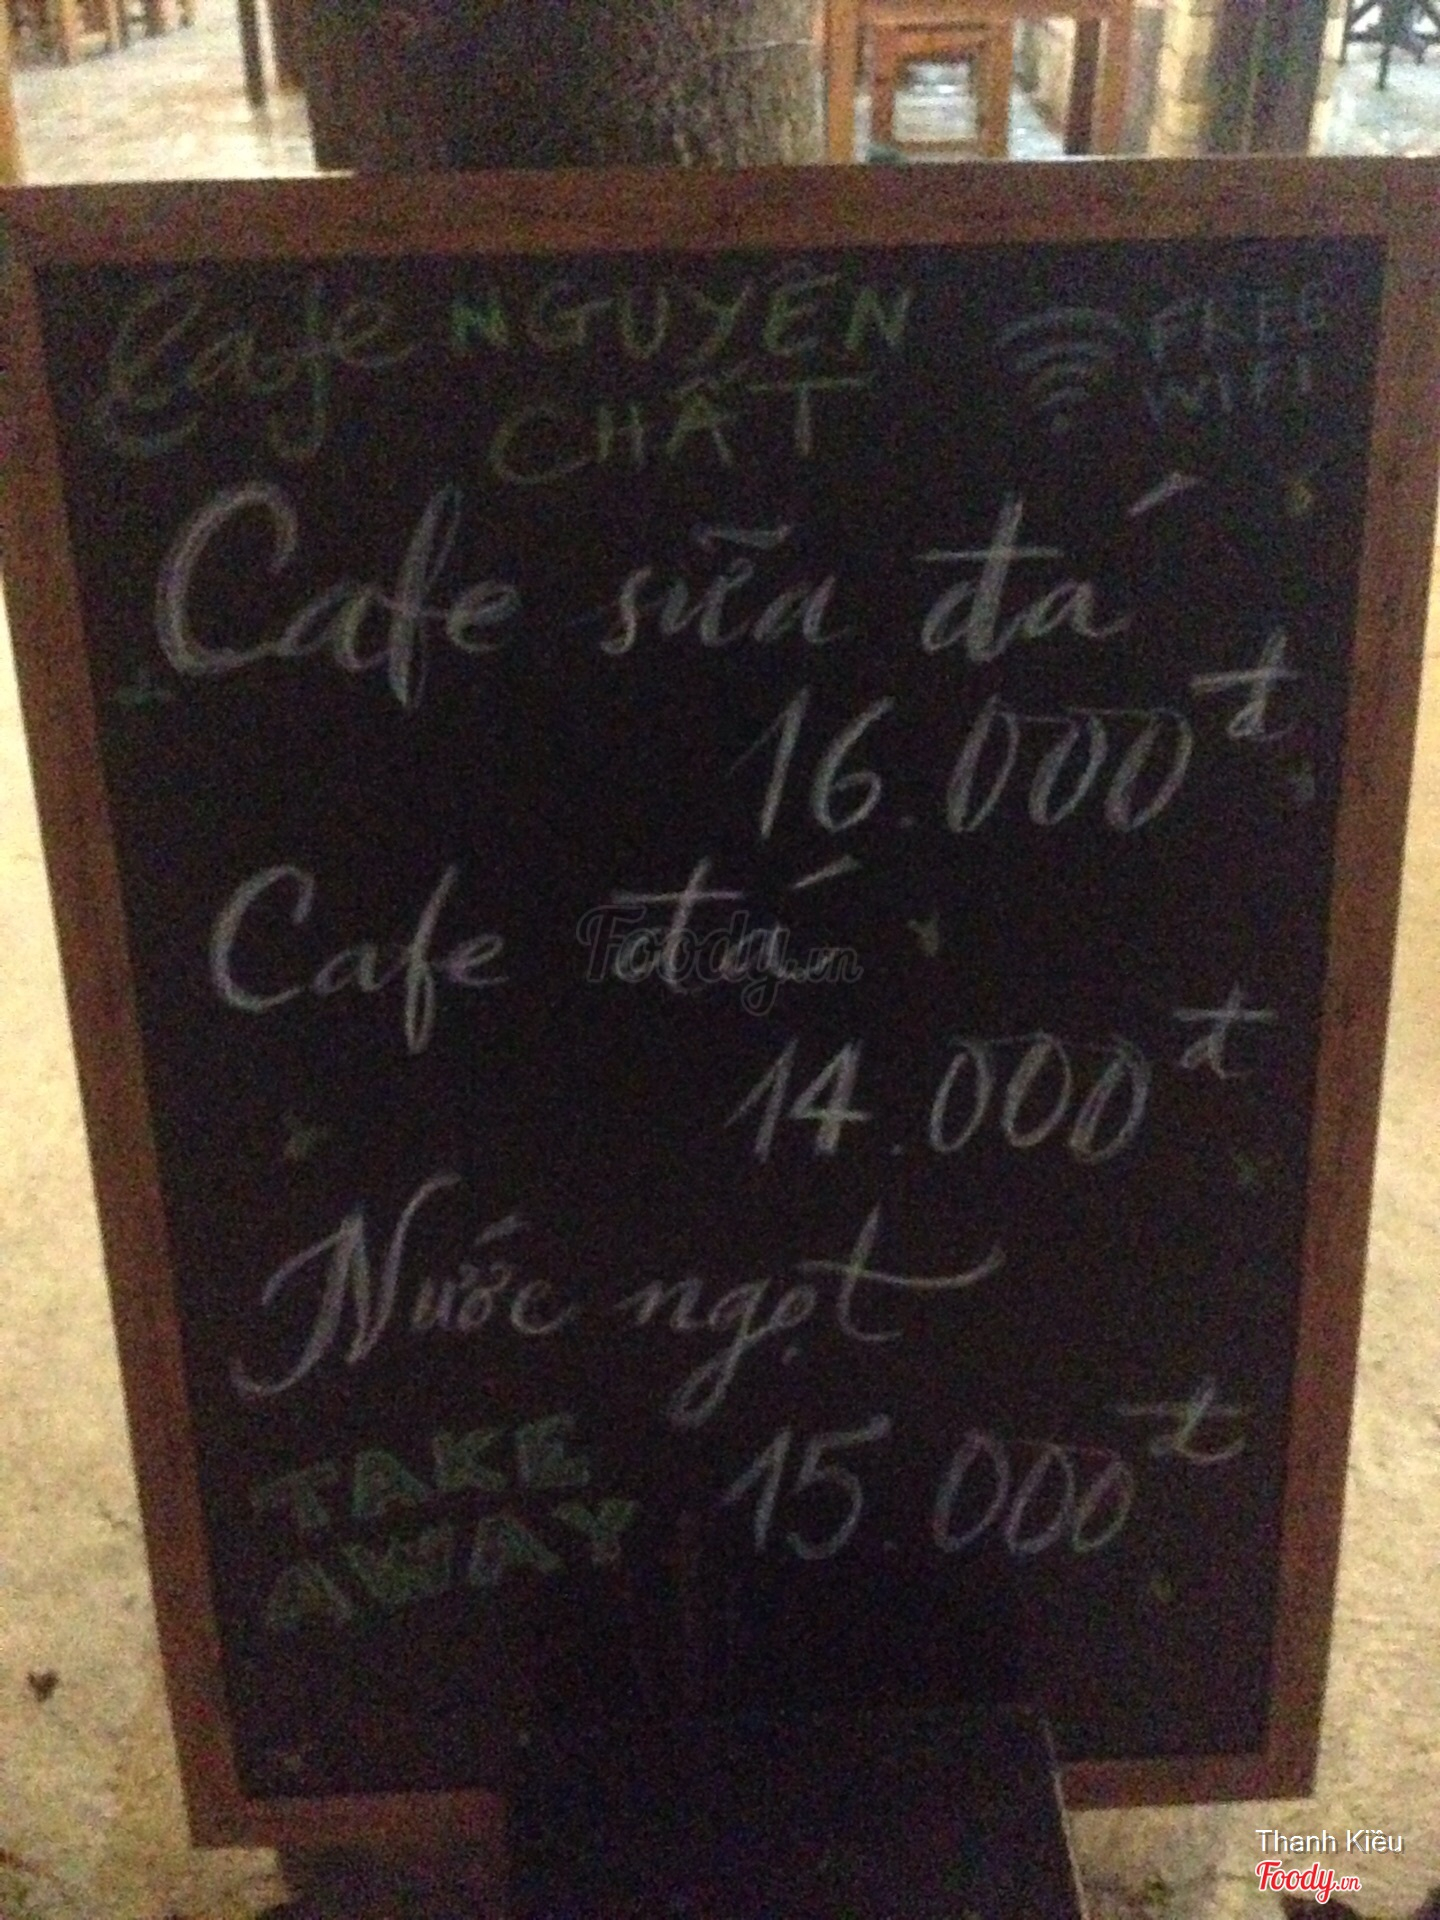 Cafe NGUYÊN
CHẤT
FREE
WIFI
Cafe sữa đá
16.000đ
Cafe đá
Foody.vn
14.000đ
Nước ngọt
15.000đ
TAKE
AWAY
Thanh Kiều
Foody.vn